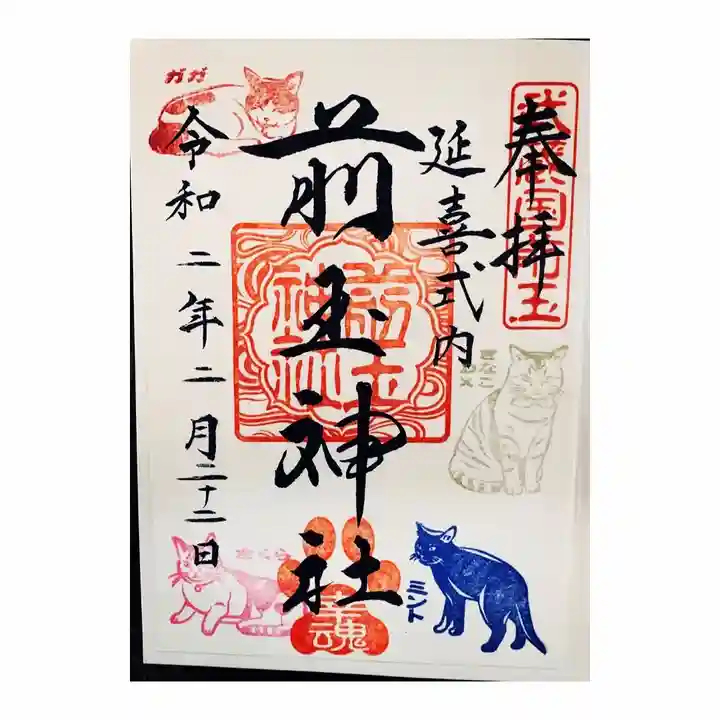 奉拝
武蔵国埼玉
延喜式内
前玉神社
前玉神社
幸魂
令和二年二月二十二日
ガガ
きなこ
さくら
ミント